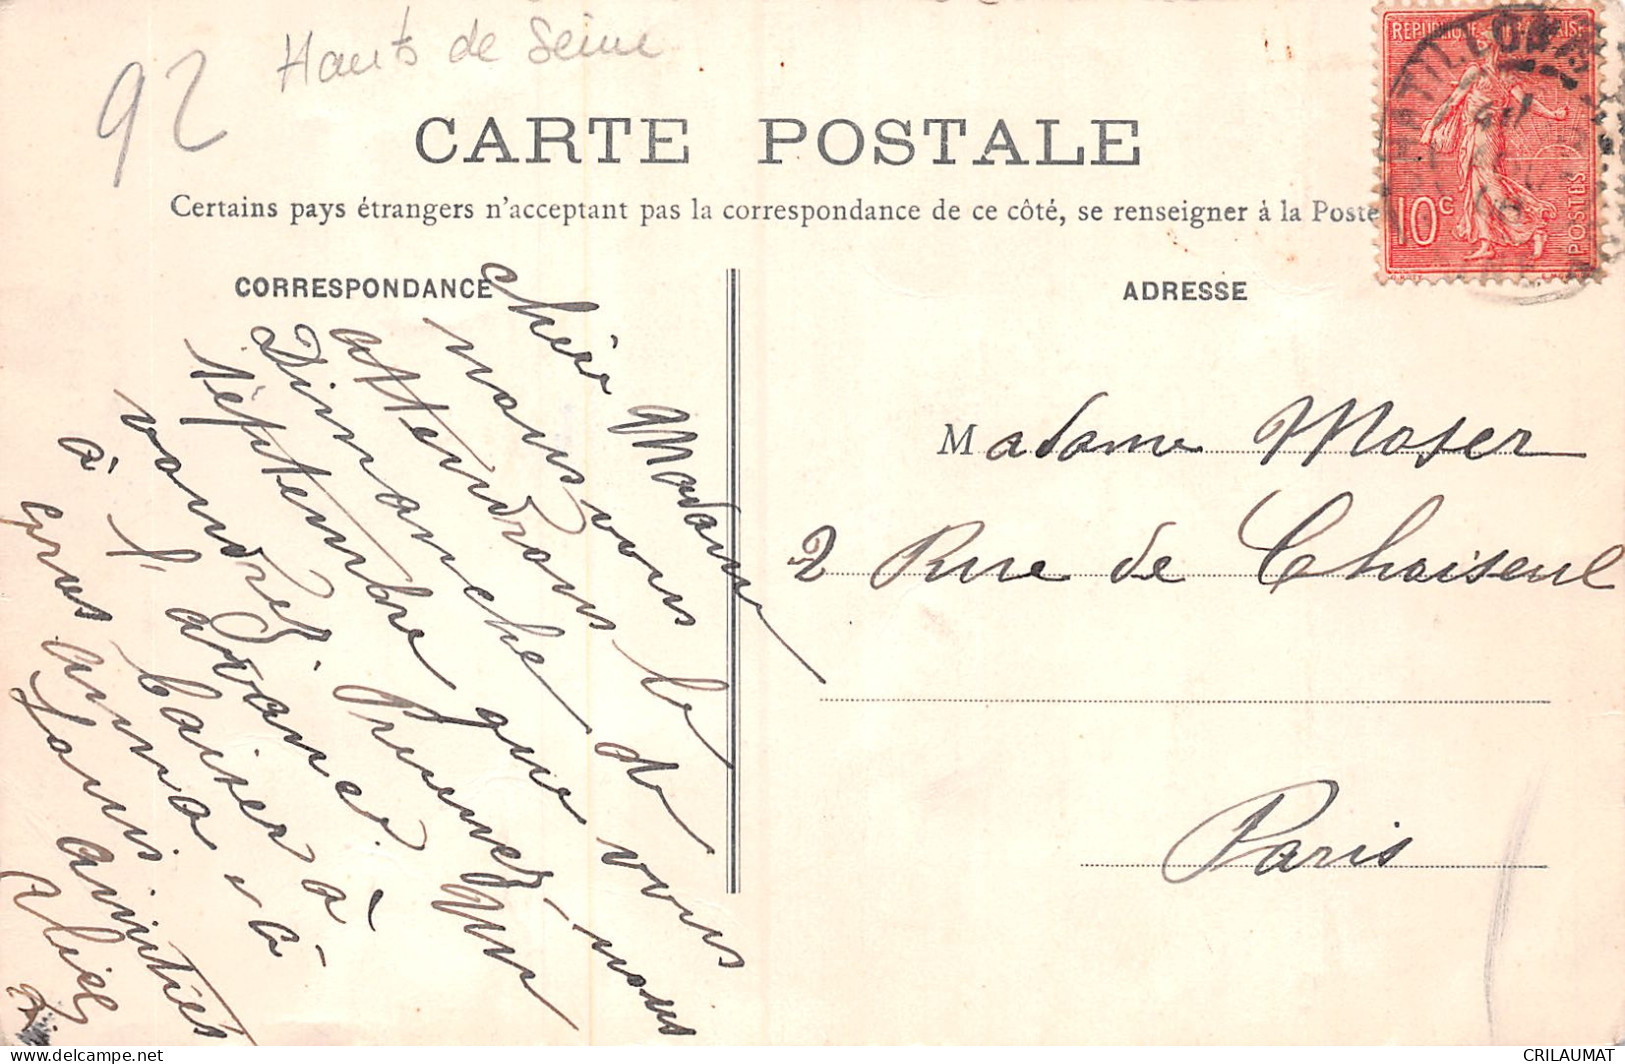 92
Hauts de Seine
CARTE POSTALE
Certains pays étrangers n'acceptent pas la correspondance de ce côté, se renseigner à la Poste
REPUBLIQUE FRANÇAISE
10c
POSTES
CORRESPONDANCE
ADRESSE
Chère Madame
nous vous
attendrons le
Dimanche
septembre que vous
voudrez. Prévenez-nous
à l'avance. Un
gros baiser à
Anna et à
Louis
amitiés
Madame Moser
2 Rue de Choiseul
Paris
CRILAUMAT
delcampe.net